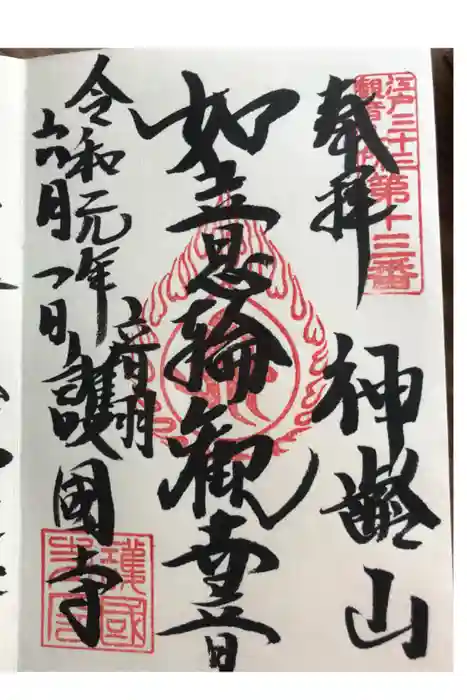 江戸三十三
観音札所
第十三番
奉拝
神齢山
如意輪観音
音羽
護國寺
令和元年
六月一日
護國